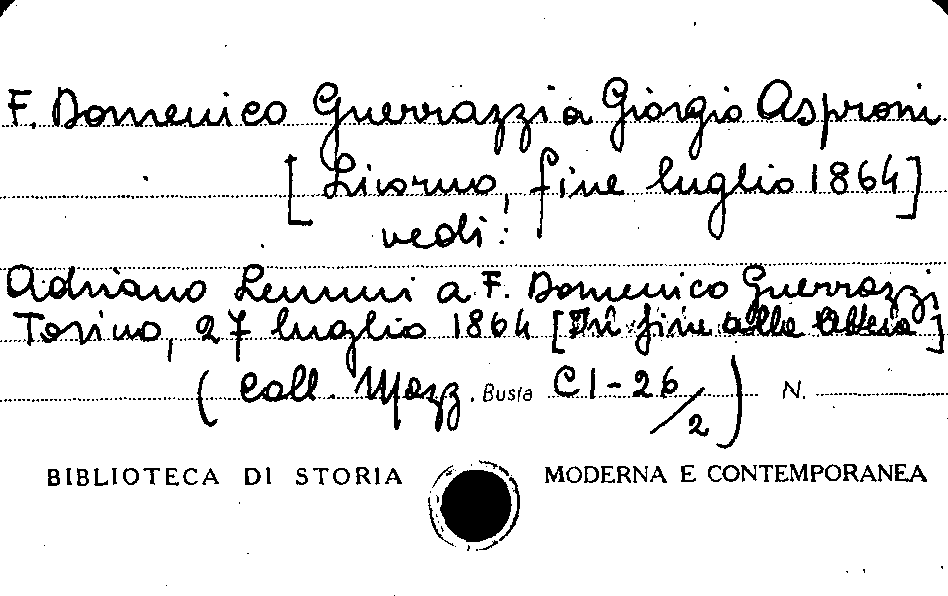 F. Domenico Guerrazzi a Giorgio Asproni
[Livorno, fine luglio 1864]
vedi:
Adriano Lemmi a F. Domenico Guerrazzi
Torino, 27 luglio 1864 [In fine alla lettera]
(Coll. Mazz. Busta C I-26/2) N.
BIBLIOTECA DI STORIA MODERNA E CONTEMPORANEA